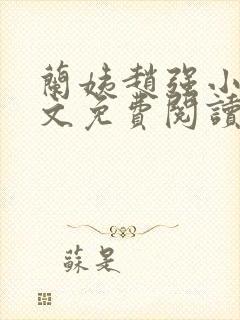 蘭姨趙強小
文免費閱讀
蘇是